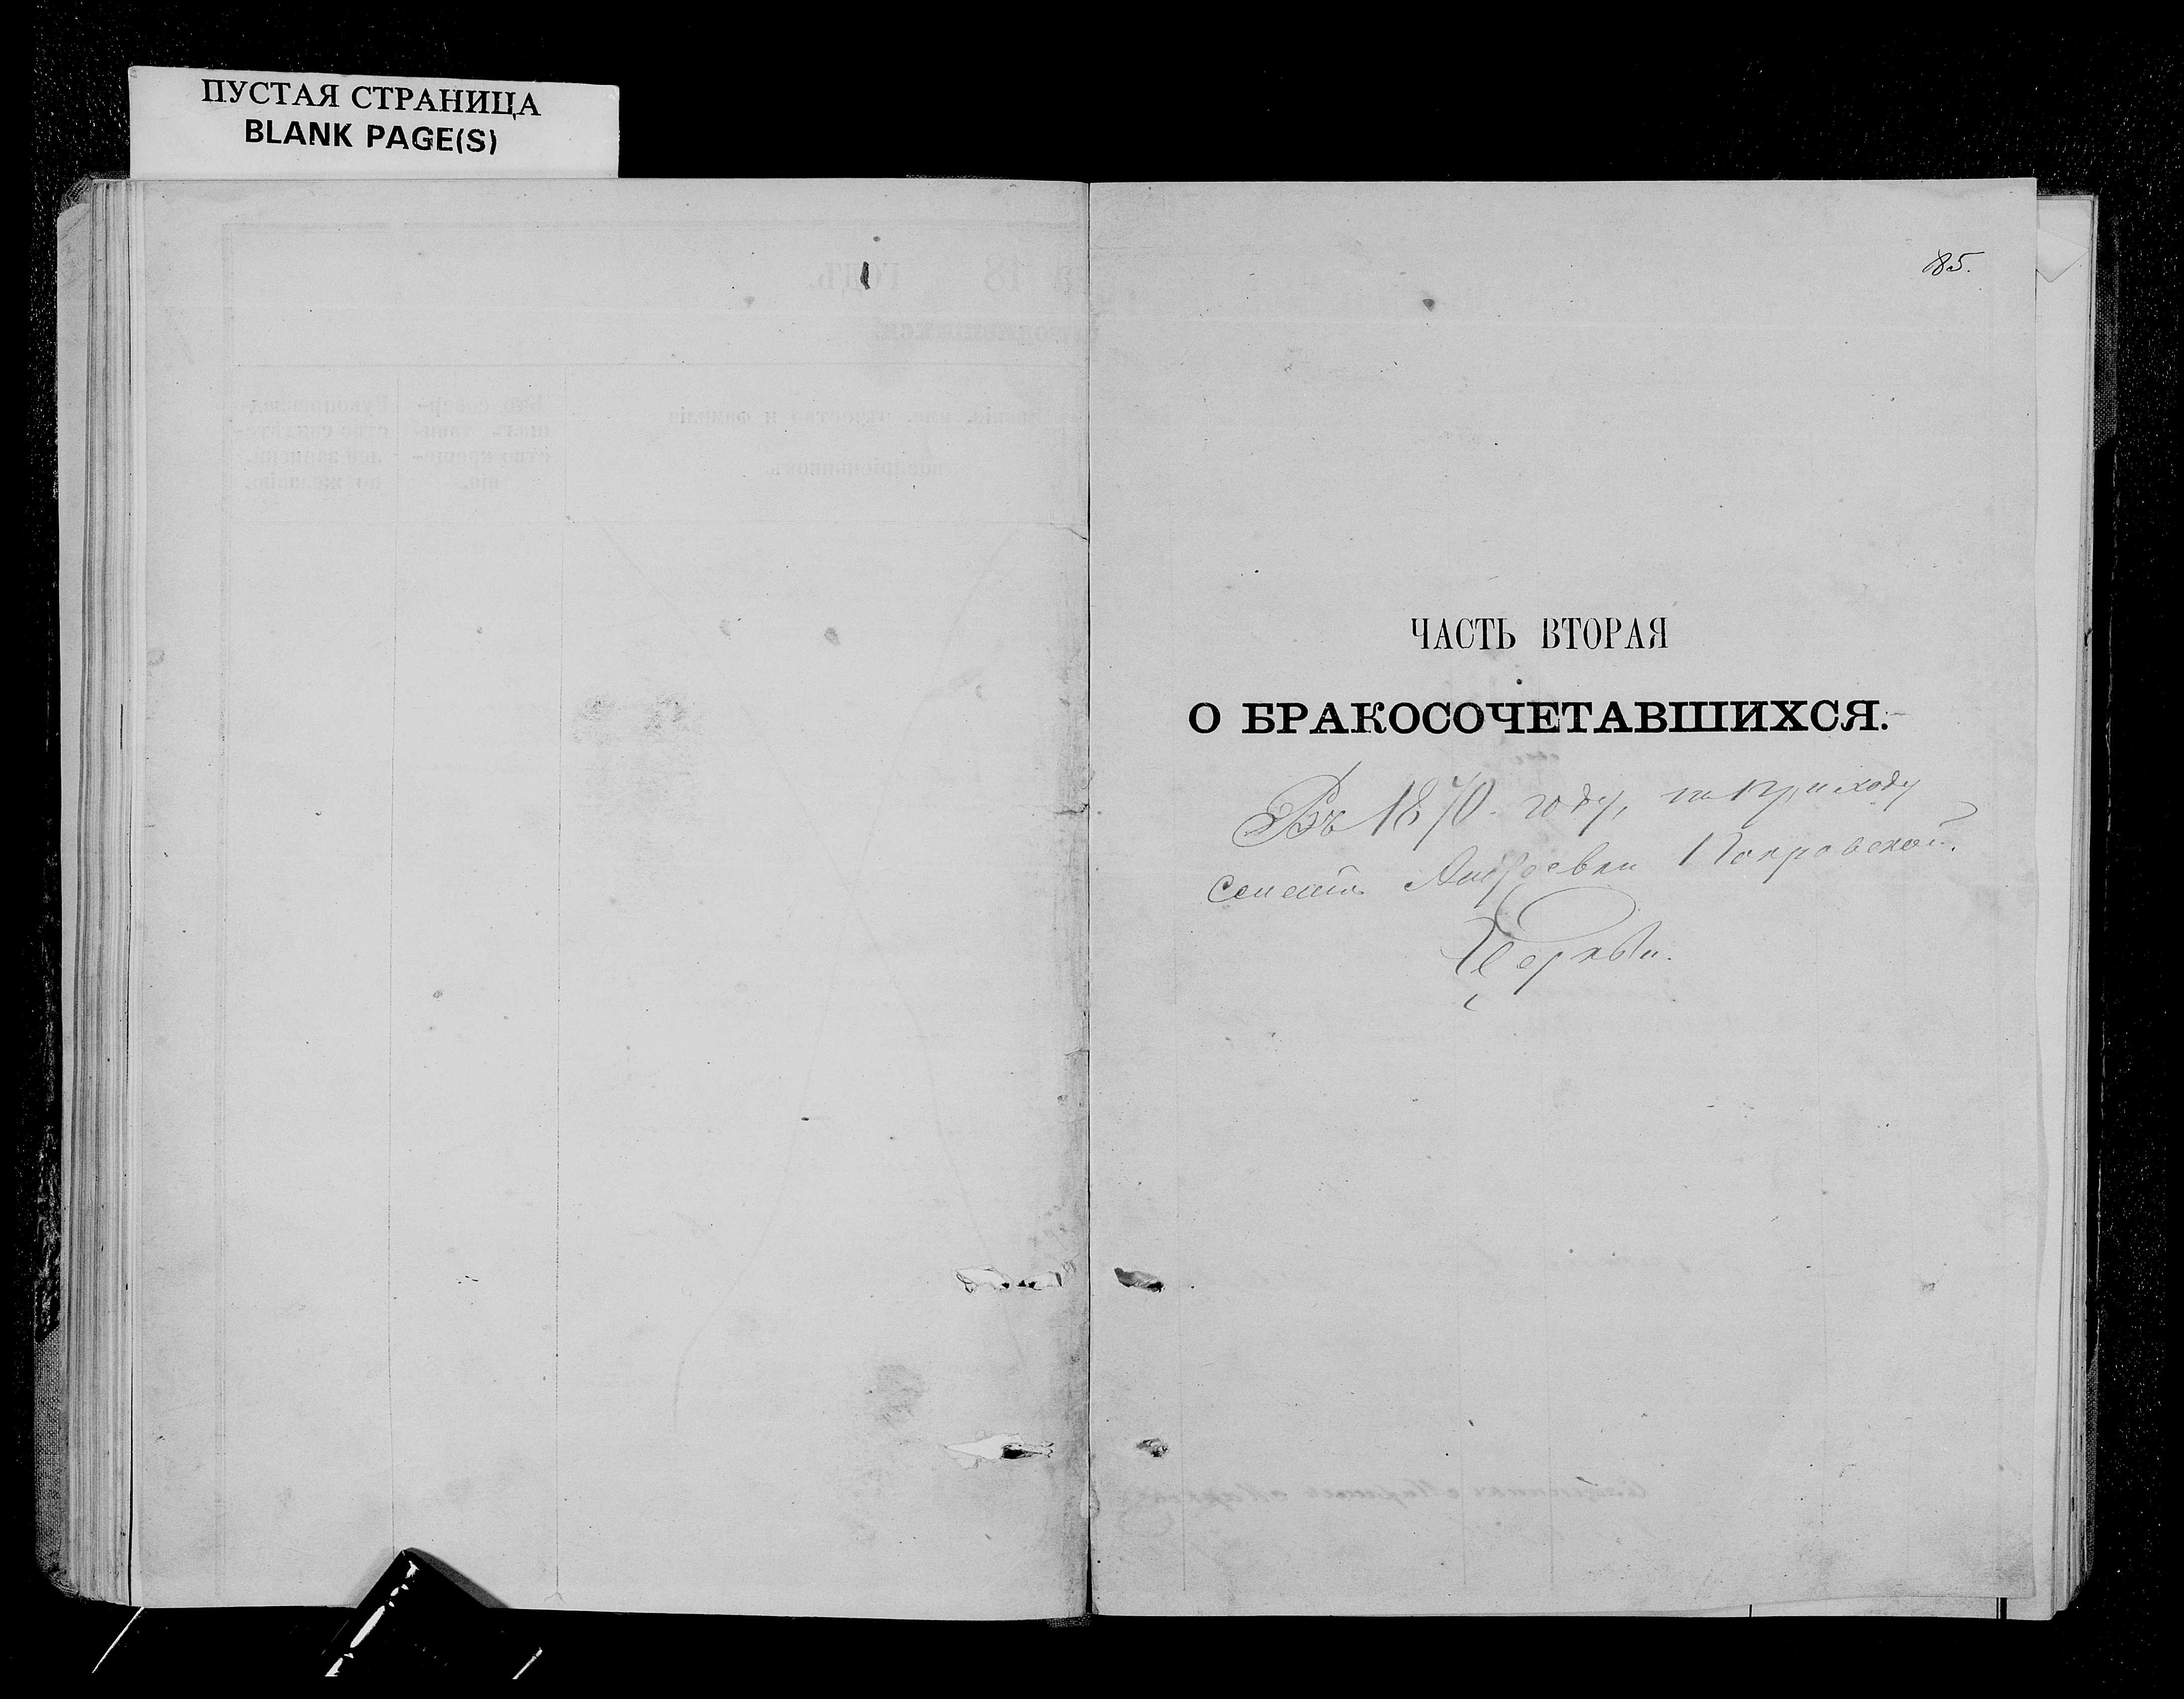 ПУСТАЯ СТРАНИЦА
BLANK PAGE(S)
85.
ЧАСТЬ ВТОРАЯ
О БРАКОСОЧЕТАВШИХСЯ.
Въ 1870. году, по приходу
Андреевки Покровской
Церкви.